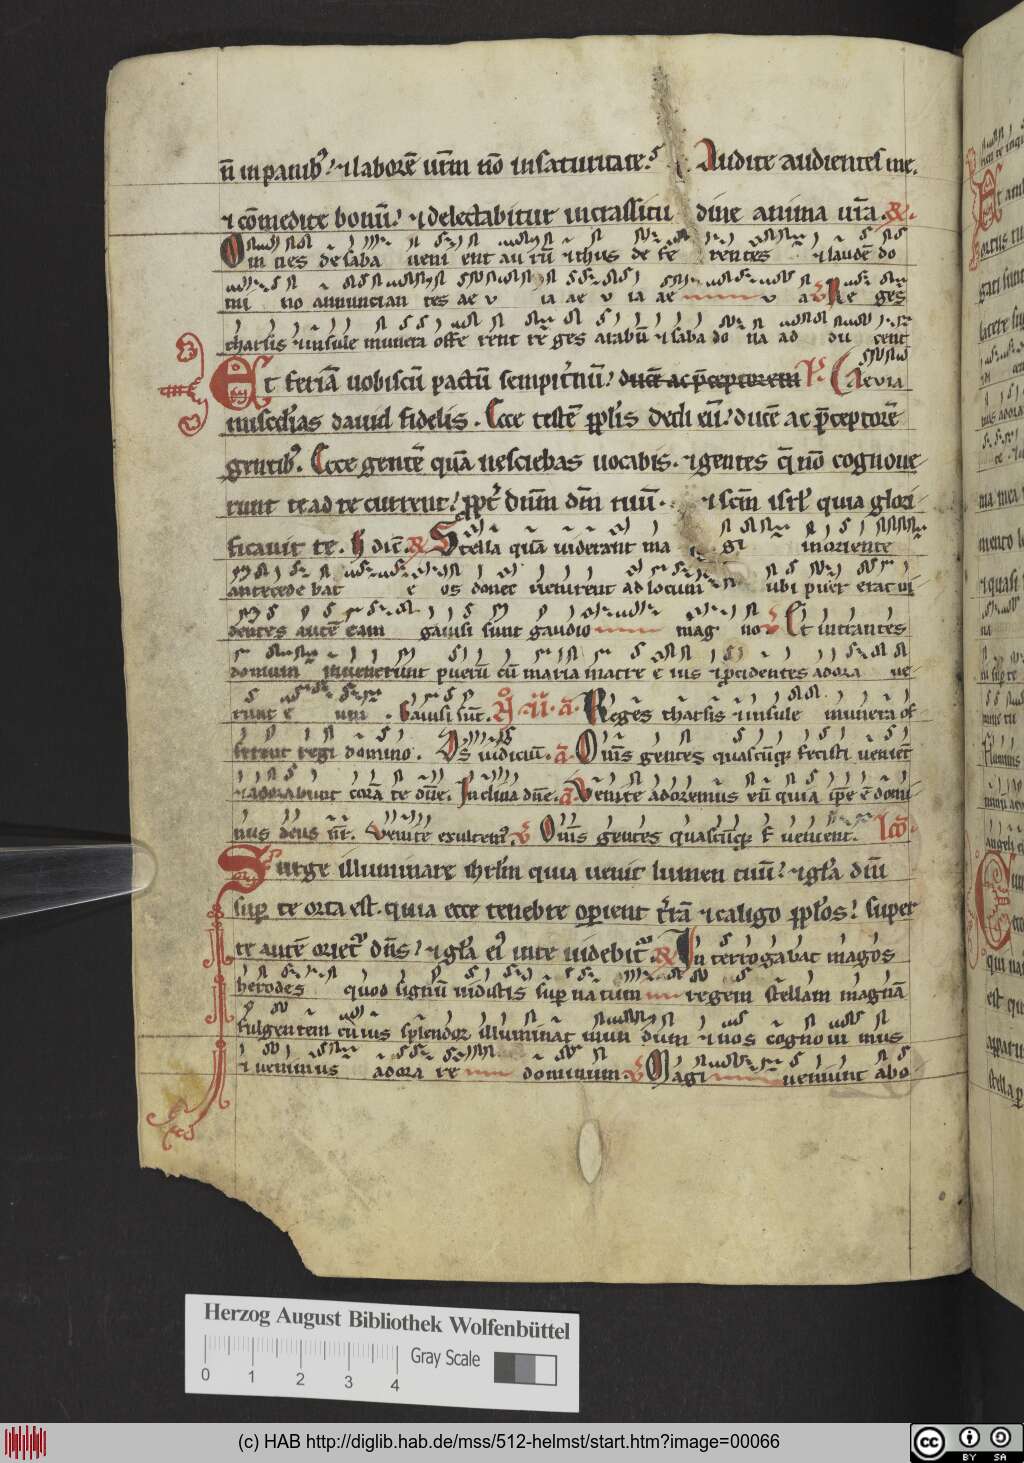 n̄ in panibꝰ? ⁊ laborē vr̄m nō in saturitate? Audite audientes me.
⁊ cōmedite bonū? ⁊ delectabitur in crassitu dine anima vr̄a. R̷.
Om nes de saba veni ent au rū ⁊ thus de fe rentes ⁊ laudē do
mi no annuncian tes ae v ia ae v ia ae v a V̷ Re ges
tharsis ⁊ insule munera offe rent re ges arabū ⁊ saba do na ad du cent
Et feriā vobiscū pactū sempit̄nū? ducē ac p̄ceptorem R̷ Aevia
misc̄dias david fidelis. Ecce testē pp̄lis dedi eū? ducē ac p̄ceptorē
gentibꝰ. Ecce gentē quā nesciebas vocabis. ⁊ gentes q̄ nō cognove
runt te ad te current? ꝓpt̄ dnm̄ dm̄ tuū. ⁊ scm̄ isrl̄ quia glori
ficavit te. h diē. R̷ Stella quā viderant ma gi in oriente
antecede bat e os donec venirent ad locum ubi puer erat vi
dentes autē eam gavisi sunt gaudio mag no V̷ Et intrantes
domum invenerunt puerū cū maria matre e ius ⁊ p̄cidentes adora ve
runt e um . Gavisi sūt. A̷ Reges tharsis ⁊ insule munera of
ferent regi domino. Ds̄ iudiciū. a̅ Om̄s gentes quascūq; fecisti venient
⁊ adorabunt corā te dn̄e. Inclina dn̄e. a̅ Venite adoremus eū quia ip̄e ē domi
nus deus nr̄. Venite exultemꝰ V̷ Om̄s gentes quascūq; f venient. Lc̄o.
Surge illuminare ihrl̄m quia venit lumen tuū? ⁊ gl̄a dn̄i
sup̱ te orta est. quia ecce tenebre op̱ient t̄rā ⁊ caligo pp̄los? super
te autē oriet᷑ dn̄s? ⁊ gl̄a eiꝰ in te videbit᷑. R̷ In terrogabat magos
herodes quod signū vidistis sup̱ na tum regem stellam magnā
fulgentem cu ius splendor illuminat mun dum ⁊ nos cogno vi mus
⁊ venimus adora re dominum V̷ Magi veniunt ab o
Herzog August Bibliothek Wolfenbüttel
Gray Scale
0 1 2 3 4
(c) HAB http://diglib.hab.de/mss/512-helmst/start.htm?image=00066
cc BY SA